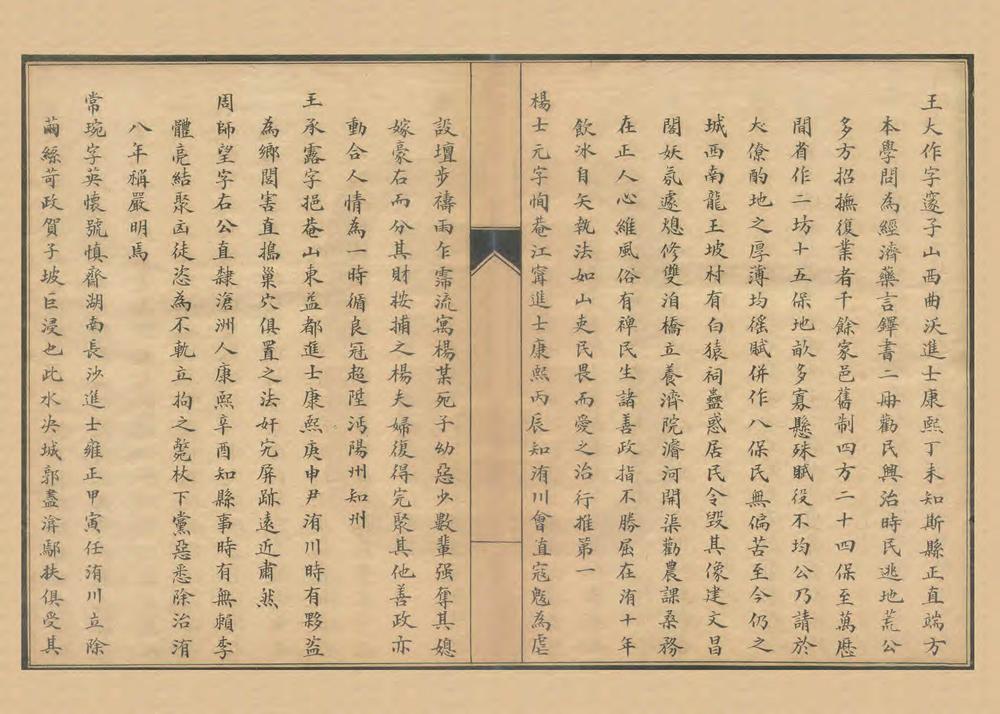 王大作字邃子山西曲沃進士康熙丁未知斯縣正直端方
本學問為經濟藥言鐸書二冊勸民興治時民逃地荒公
多方招撫復業者千餘家邑舊制四方二十四保至萬歷
間省作二坊十五保地畝多寡懸殊賦役不均公乃請於
大僚酌地之厚薄均徭賦併作八保民無偏苦至今仍之
城西南龍王坡村有白猿祠蠱惑居民令毀其像建文昌
閣妖氛遽熄修雙洎橋立養濟院濬河開渠勸農課桑務
在正人心維風俗有裨民生諸善政指不勝屈在洧十年
飲冰自矢執法如山吏民畏而愛之治行推第一
楊士元字恂菴江寧進士康熙丙辰知洧川會直寇魃為虐
設壇步禱雨乍霈流寓楊某死子幼惡少數輩强奪其媳
嫁豪右而分其財按捕之楊夫婦復得完聚其他善政亦
動合人情為一時循良冠超陞沔陽州知州
王承露字挹菴山東益都進士康熙庚申尹洧川時有夥盜
為鄉閭害直搗巢穴俱置之法奸宄屏跡遠近肅然
周師望字右公直隸滄洲人康熙辛酉知縣事時有無賴李
體亮結聚凶徒恣為不軌立拘之斃杖下黨惡悉除治洧
八年稱嚴明焉
常琬字英懷號慎齋湖南長沙進士雍正甲寅任洧川立除
繭絲苛政賀子坡巨浸也此水決城郭盡渰鄢扶俱受其